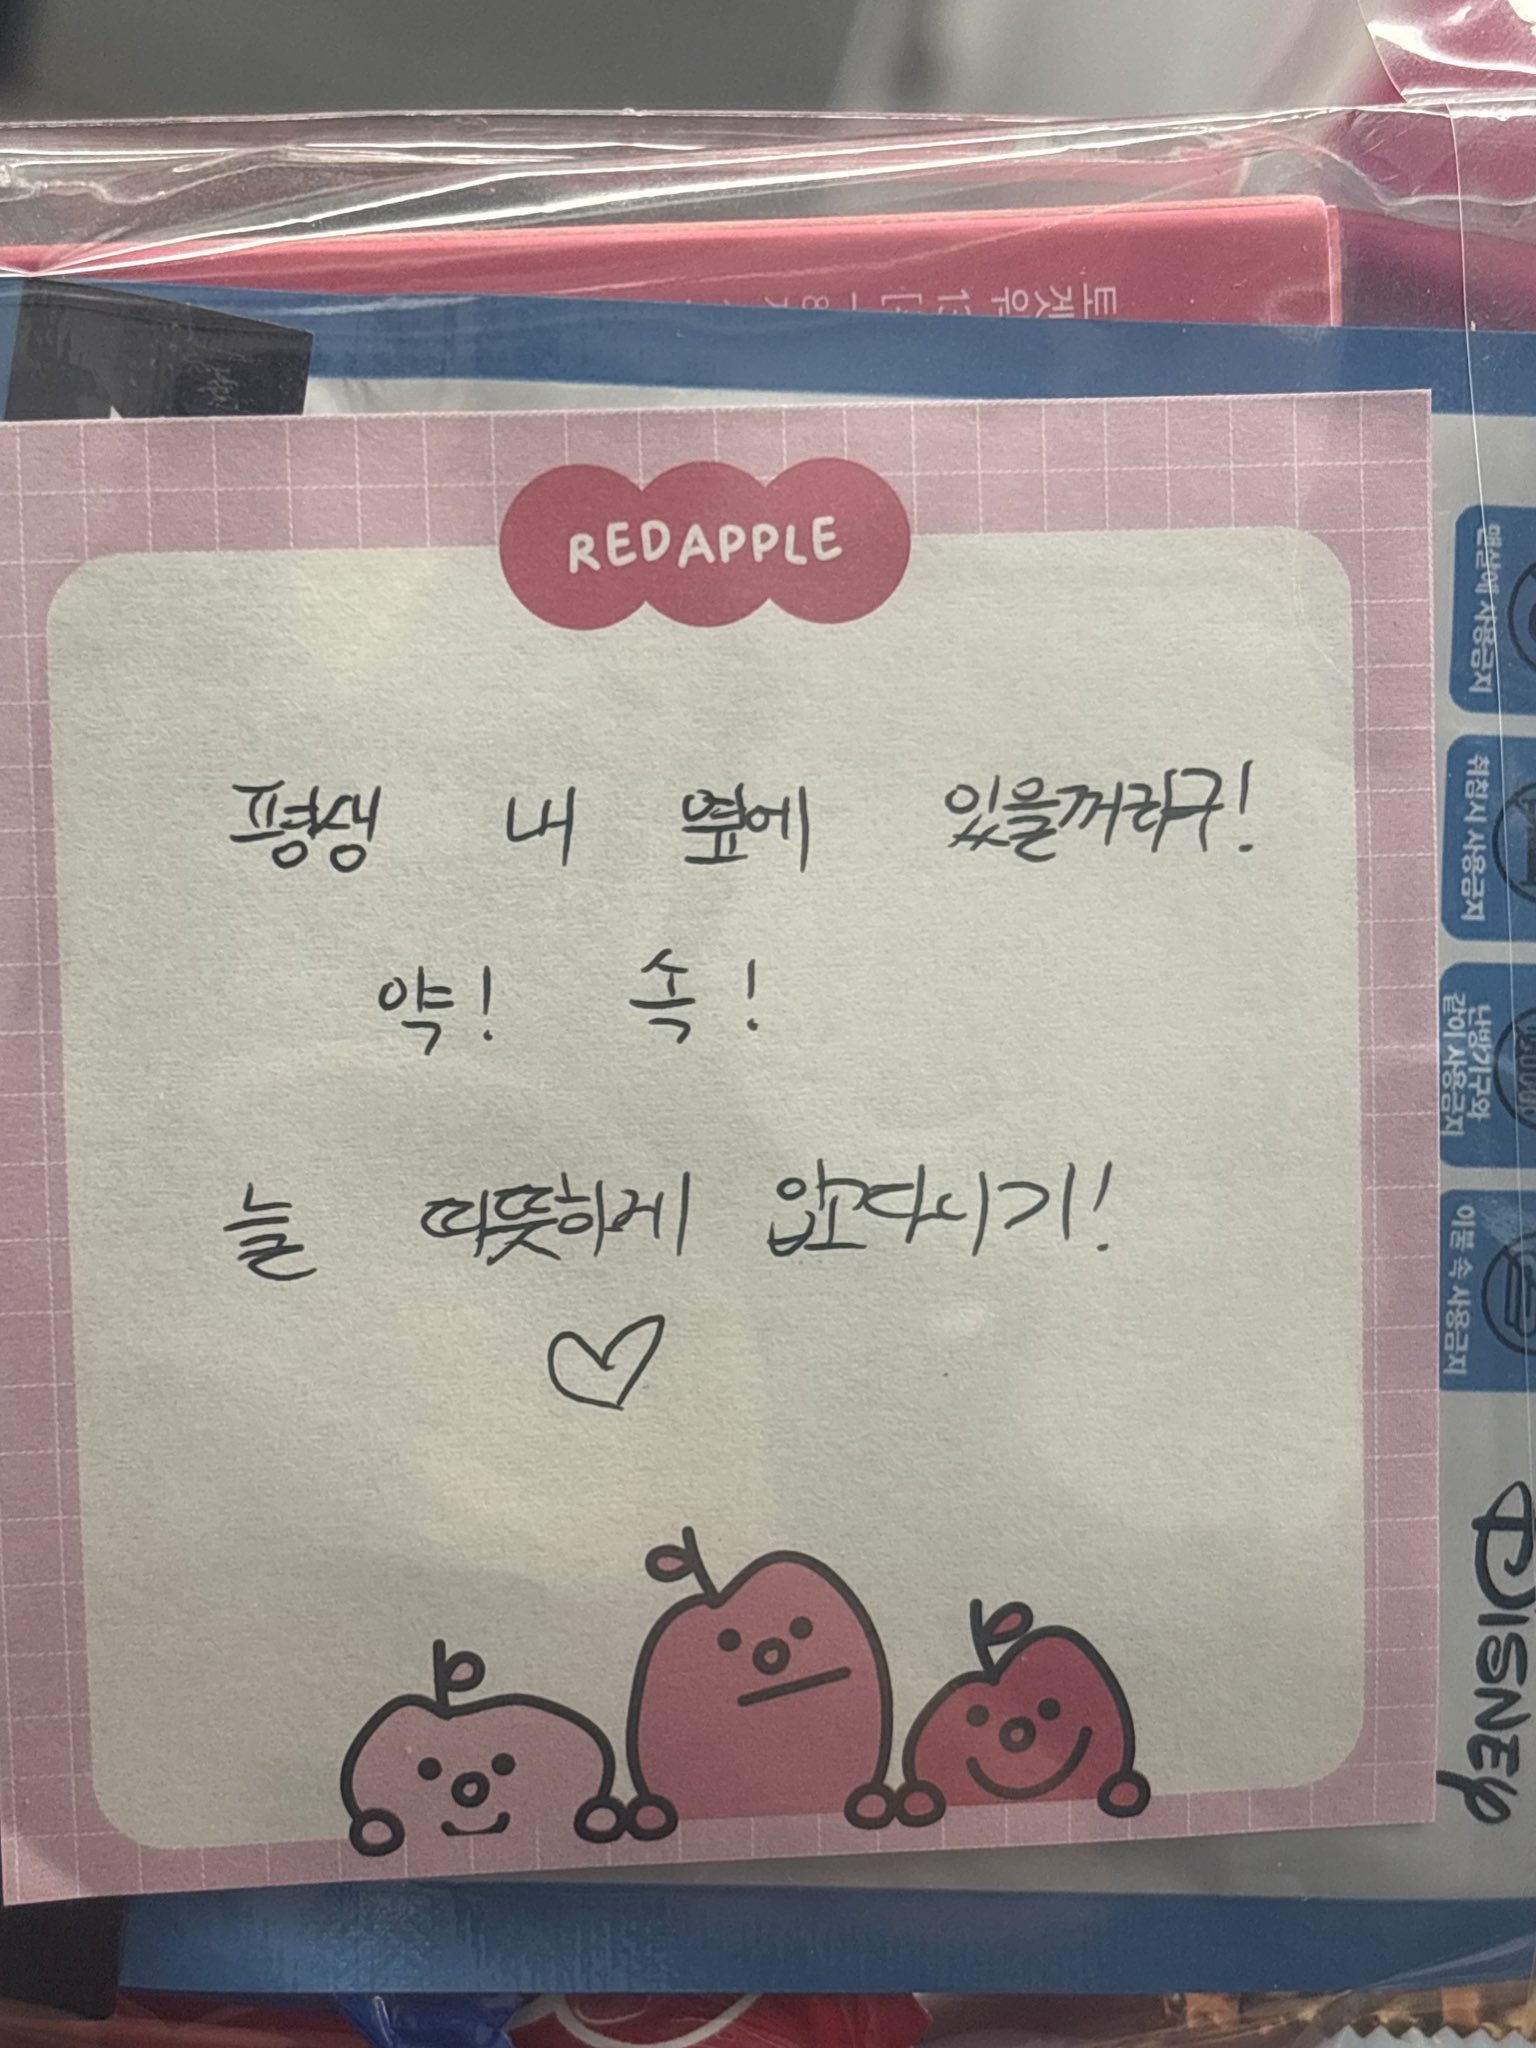 REDAPPLE
평생 내 옆에 있을꺼라구!
약! 속!
늘 따뜻하게 입고다니기!
맨살에 사용금지
취침시 사용금지
난방기구와
같이 사용금지
이불 속 사용금지
DISNEY